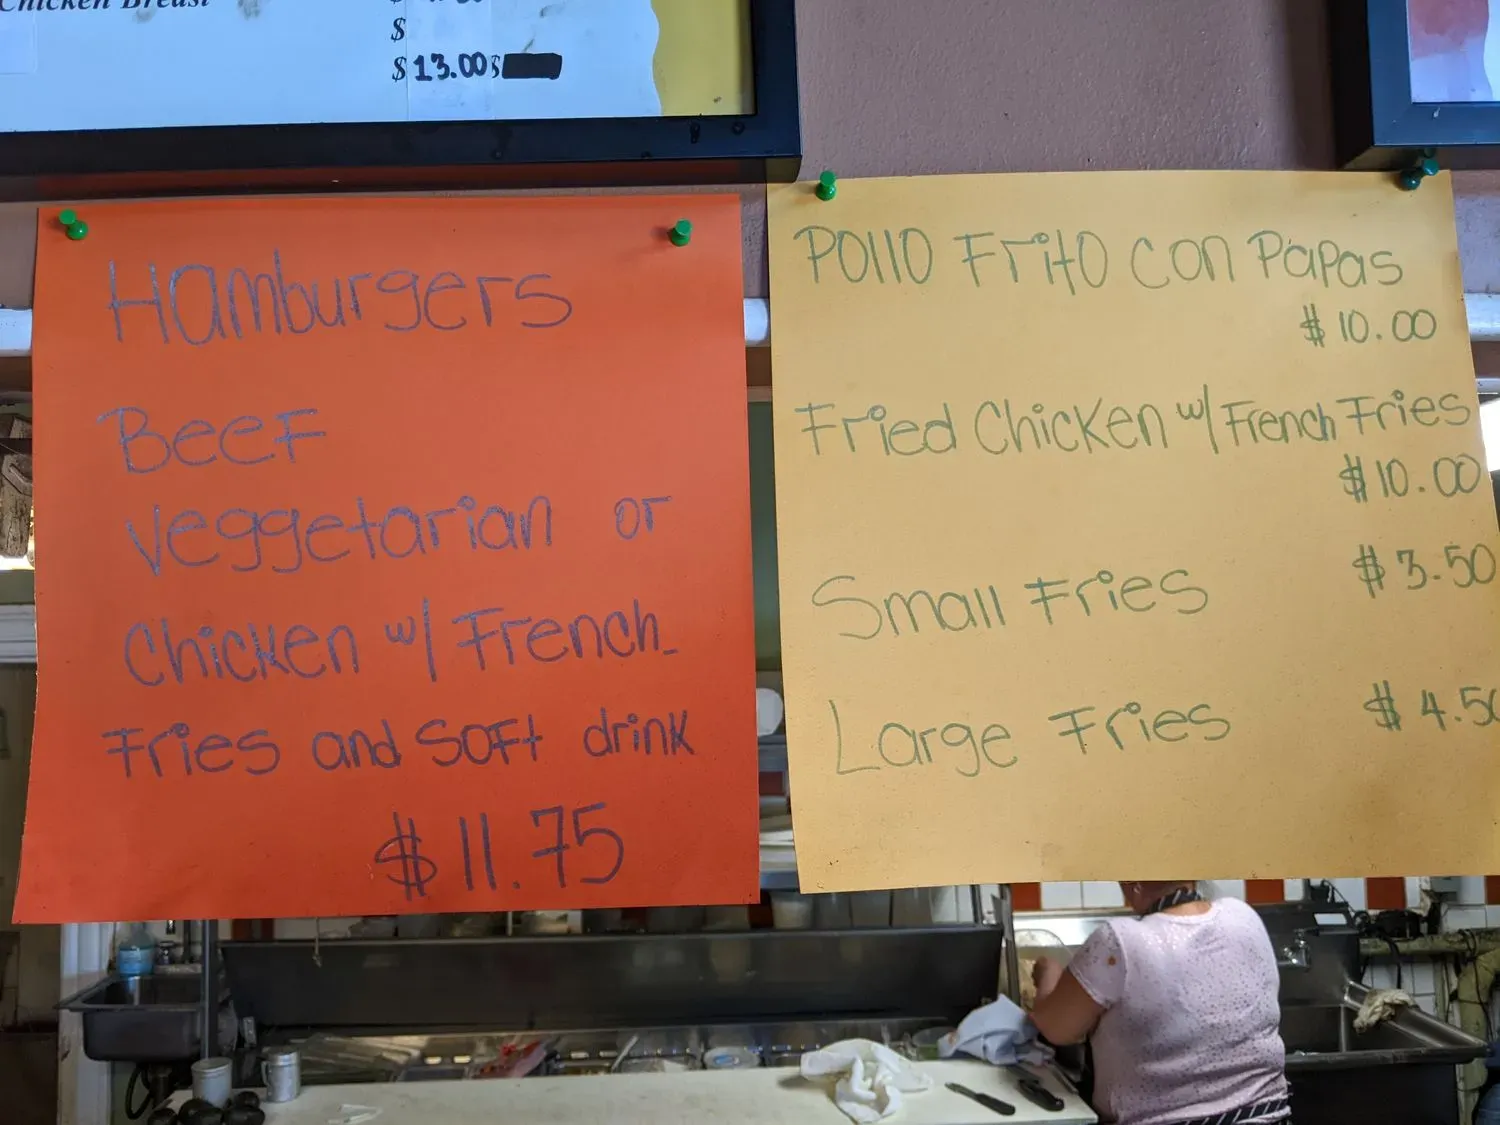 Chicken Breast
$
$13.00
Hamburgers
Beef
Veggetarian or
Chicken w/ French
Fries and soft drink
$11.75
Pollo Frito con Papas
$10.00
Fried Chicken w/ French Fries
$10.00
Small Fries $3.50
Large Fries $4.50